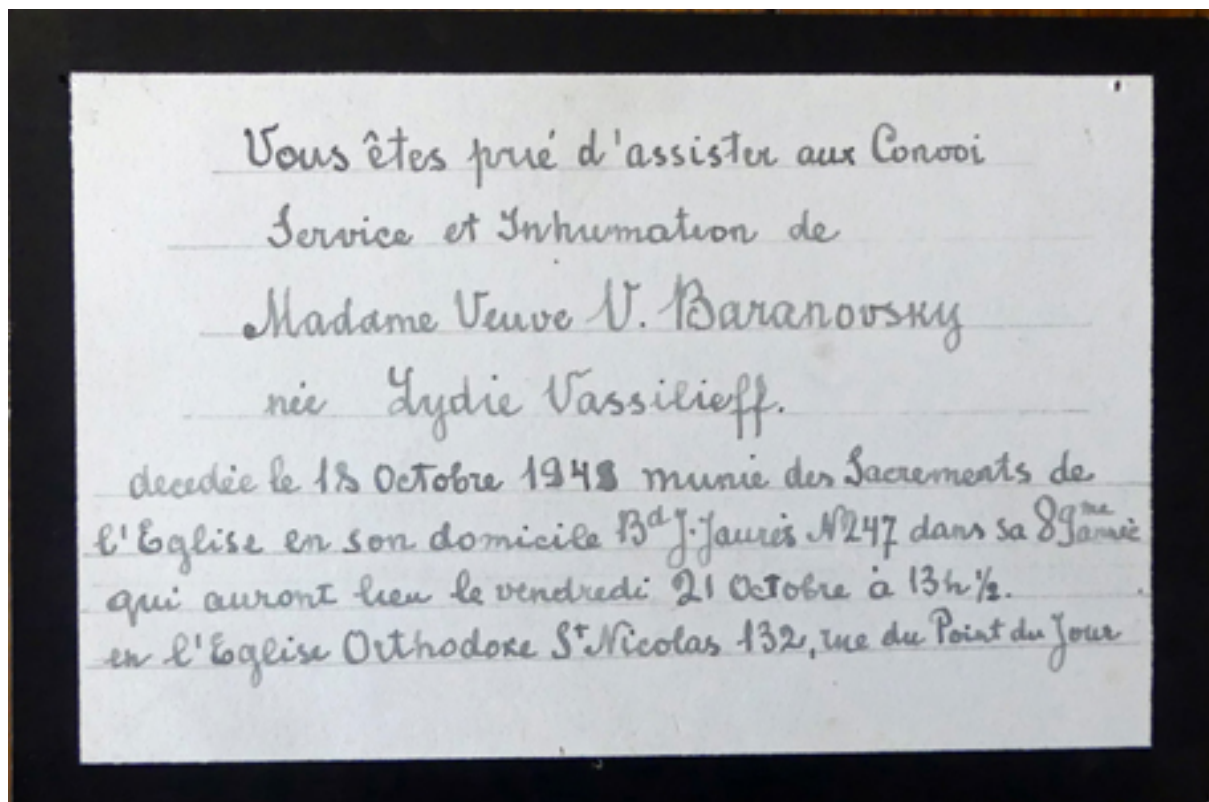 Vous êtes prié d'assister aux Convoi
Service et Inhumation de
Madame Veuve V. Baranovsky
née Lydie Vassilieff.
decedée le 18 Octobre munie des Sacrements de
l'Eglise en son domicile Bd J. Jaurès N247 dans sa 89me année
qui auront lieu le vendredi 21 Octobre à 13h ½.
en l'Eglise Orthodoxe St Nicolas 132, rue du Point du Jour